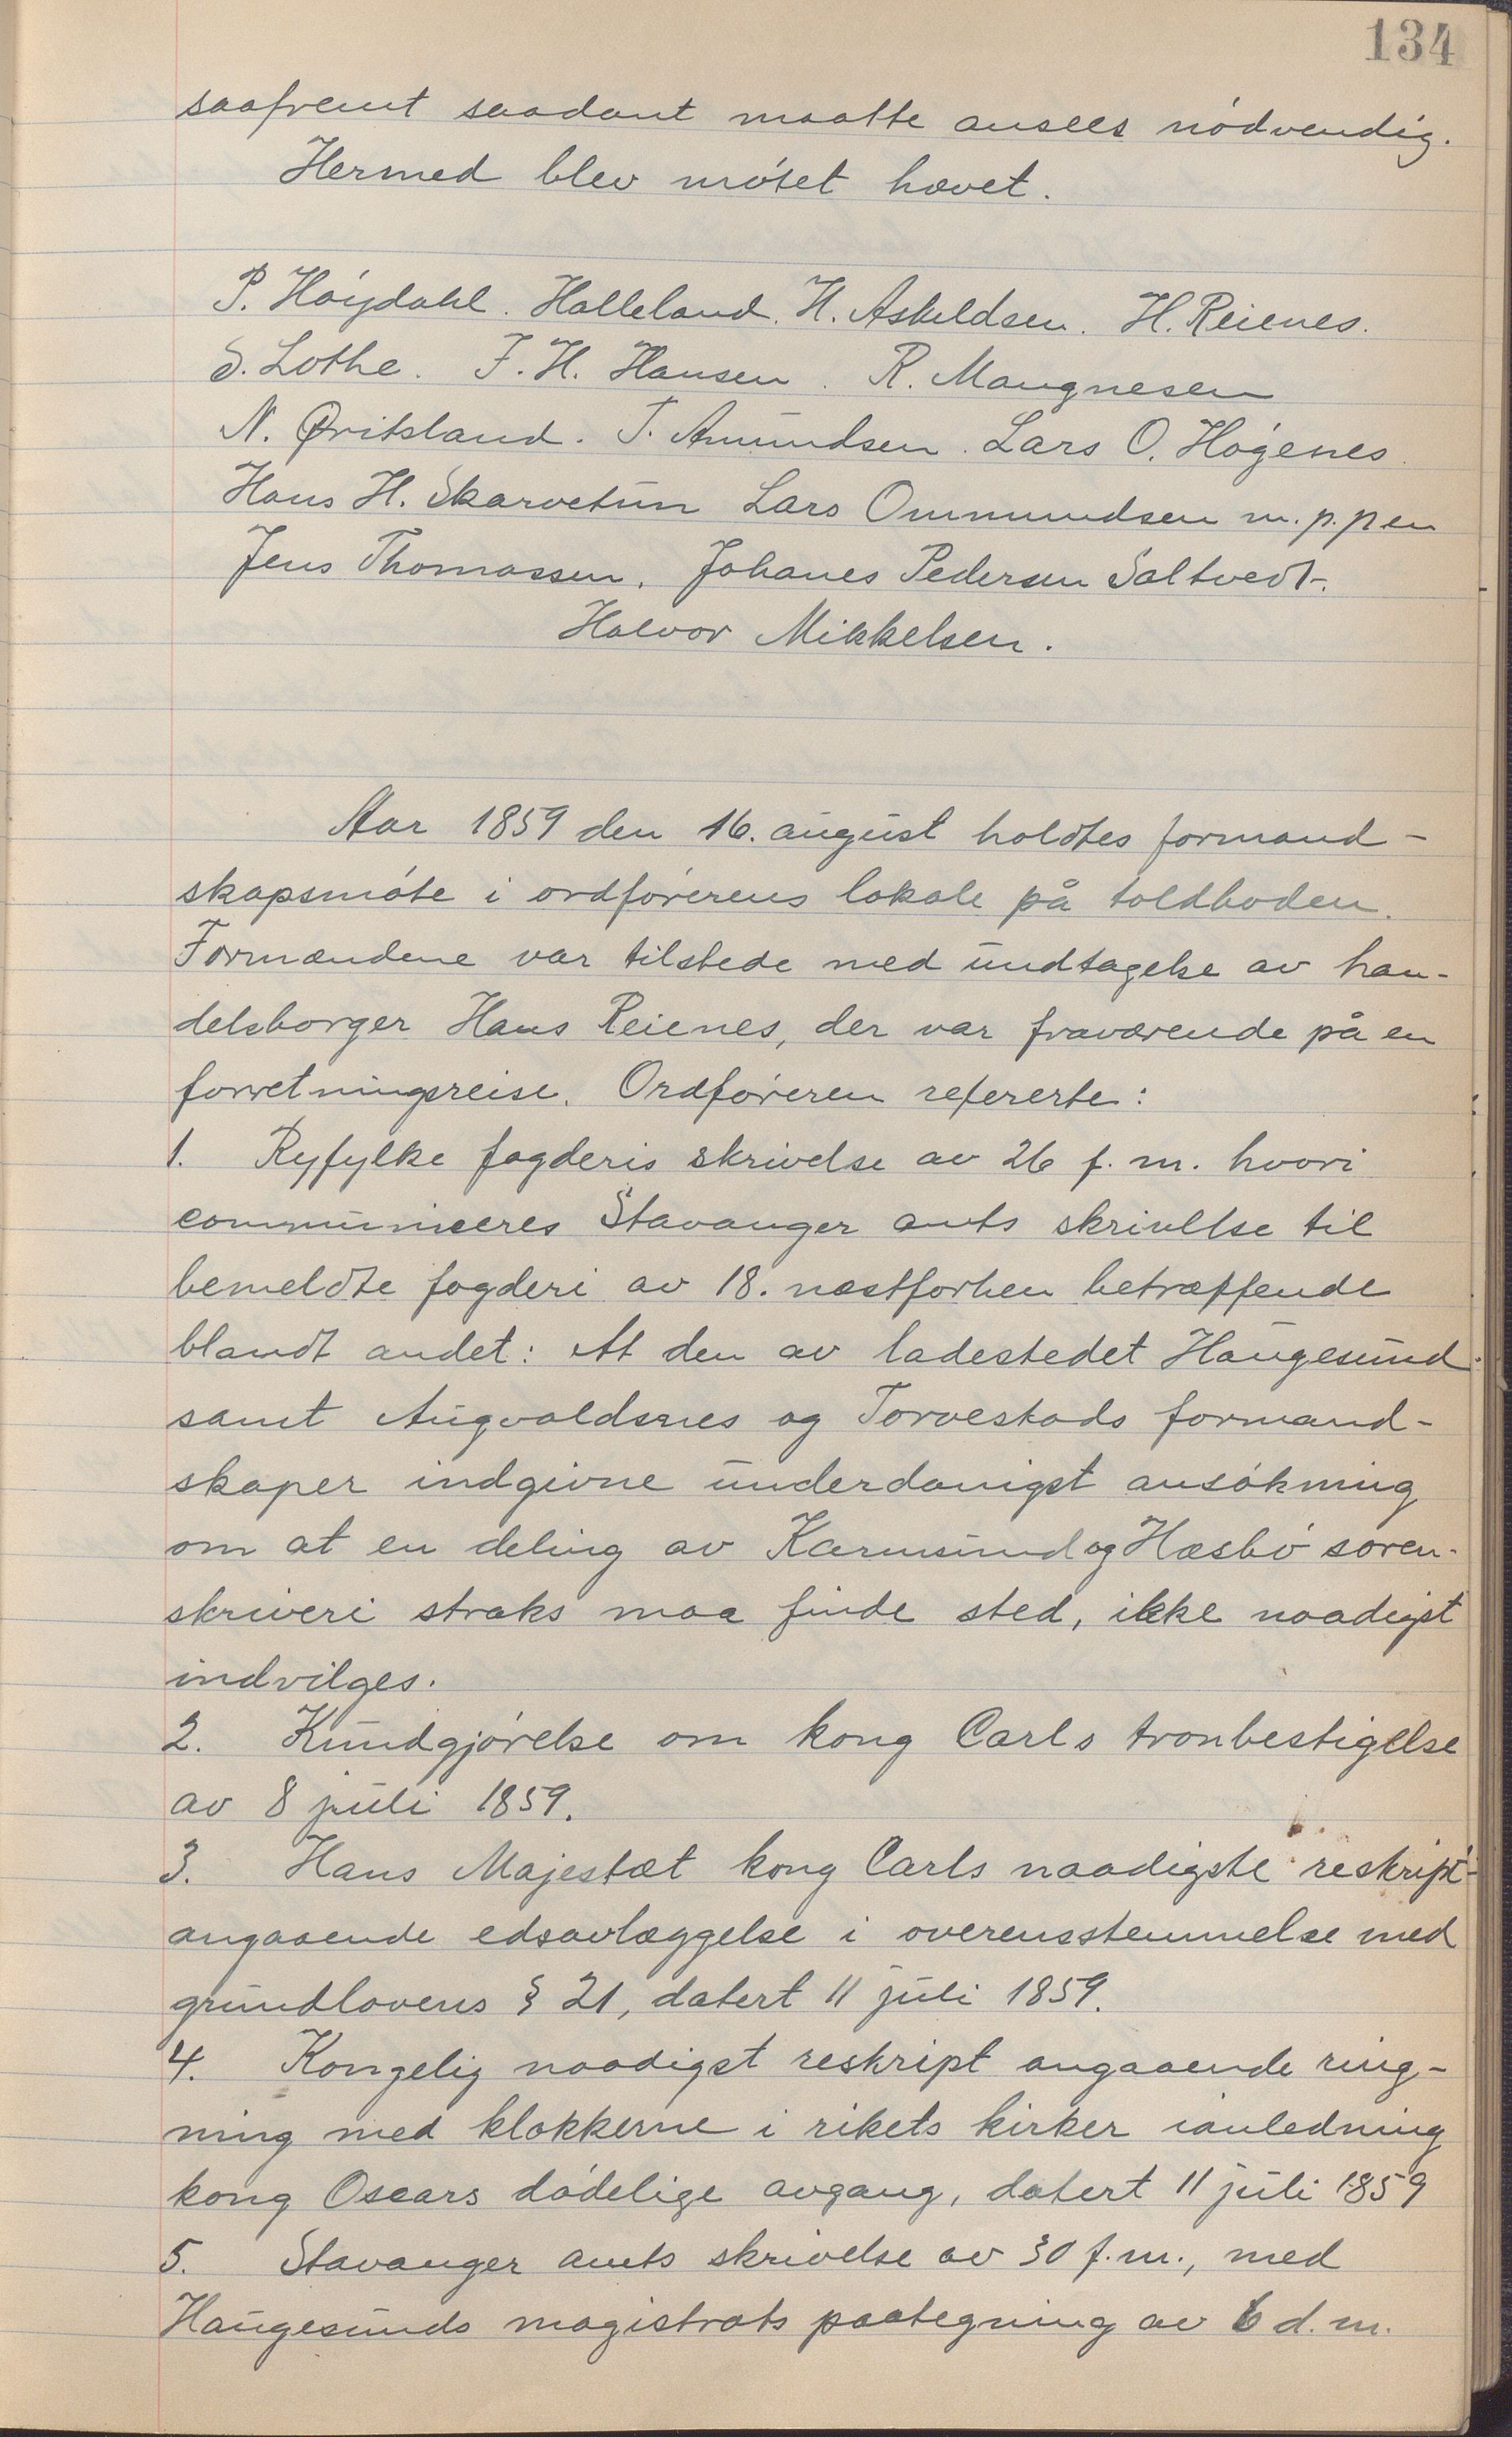 134
saafremt saadant maatte ansees nødvendig.
Hermed blev møtet hævet.
P. Høydahl. Halleland. H. Askeldsen. H. Reienes.
S. Lothe. F. H. Hansen. R. Mangnesen
N. Øritsland. T. Amundsen. Lars O. Høgenes.
Hans H. Skarvetun Lars Ommundsen m.p.pen
Jens Thomassen. Johanes Pedersen Saltvedt.
Halvor Mikkelsen.
Aar 1859 den 16. august holdtes formand-
skapsmøte i ordførerens lokale på toldboden.
Formændene var tilstede med undtagelse av han-
delsborger Hans Reienes, der var fraværende på en
forretningsreise. Ordføreren refererte:
1. Ryfylke fogderis skrivelse av 26 f. m. hvori
communiceres Stavanger amts skrivelse til
bemeldte fogderi av 18. næstforhen betræffende
blandt andet: At den av ladestedet Haugesund
samt Augvaldsnes og Torvestads formand-
skaper indgivne underdanigst ansøkning
om at en deling av Karmsund og Hæsbø soren-
skriveri straks maa finde sted, ikke naadigst
indvilges.
2. Kundgjørelse om kong Carls tronbestigelse
av 8 juli 1859.
3. Hans Majestæt kong Carls naadigste reskript
angaaende edsavlæggelse i overensstemmelse med
grundlovens § 21, datert 11 juli 1859.
4. Kongelig naadigst reskript angaaende ring-
ning med klokkerne i rikets kirker ianledning
kong Oscars dødelige avgang, datert 11 juli 1859
5. Stavanger amts skrivelse av 30 f. m., med
Haugesunds magistrats paategning av 6 d. m.